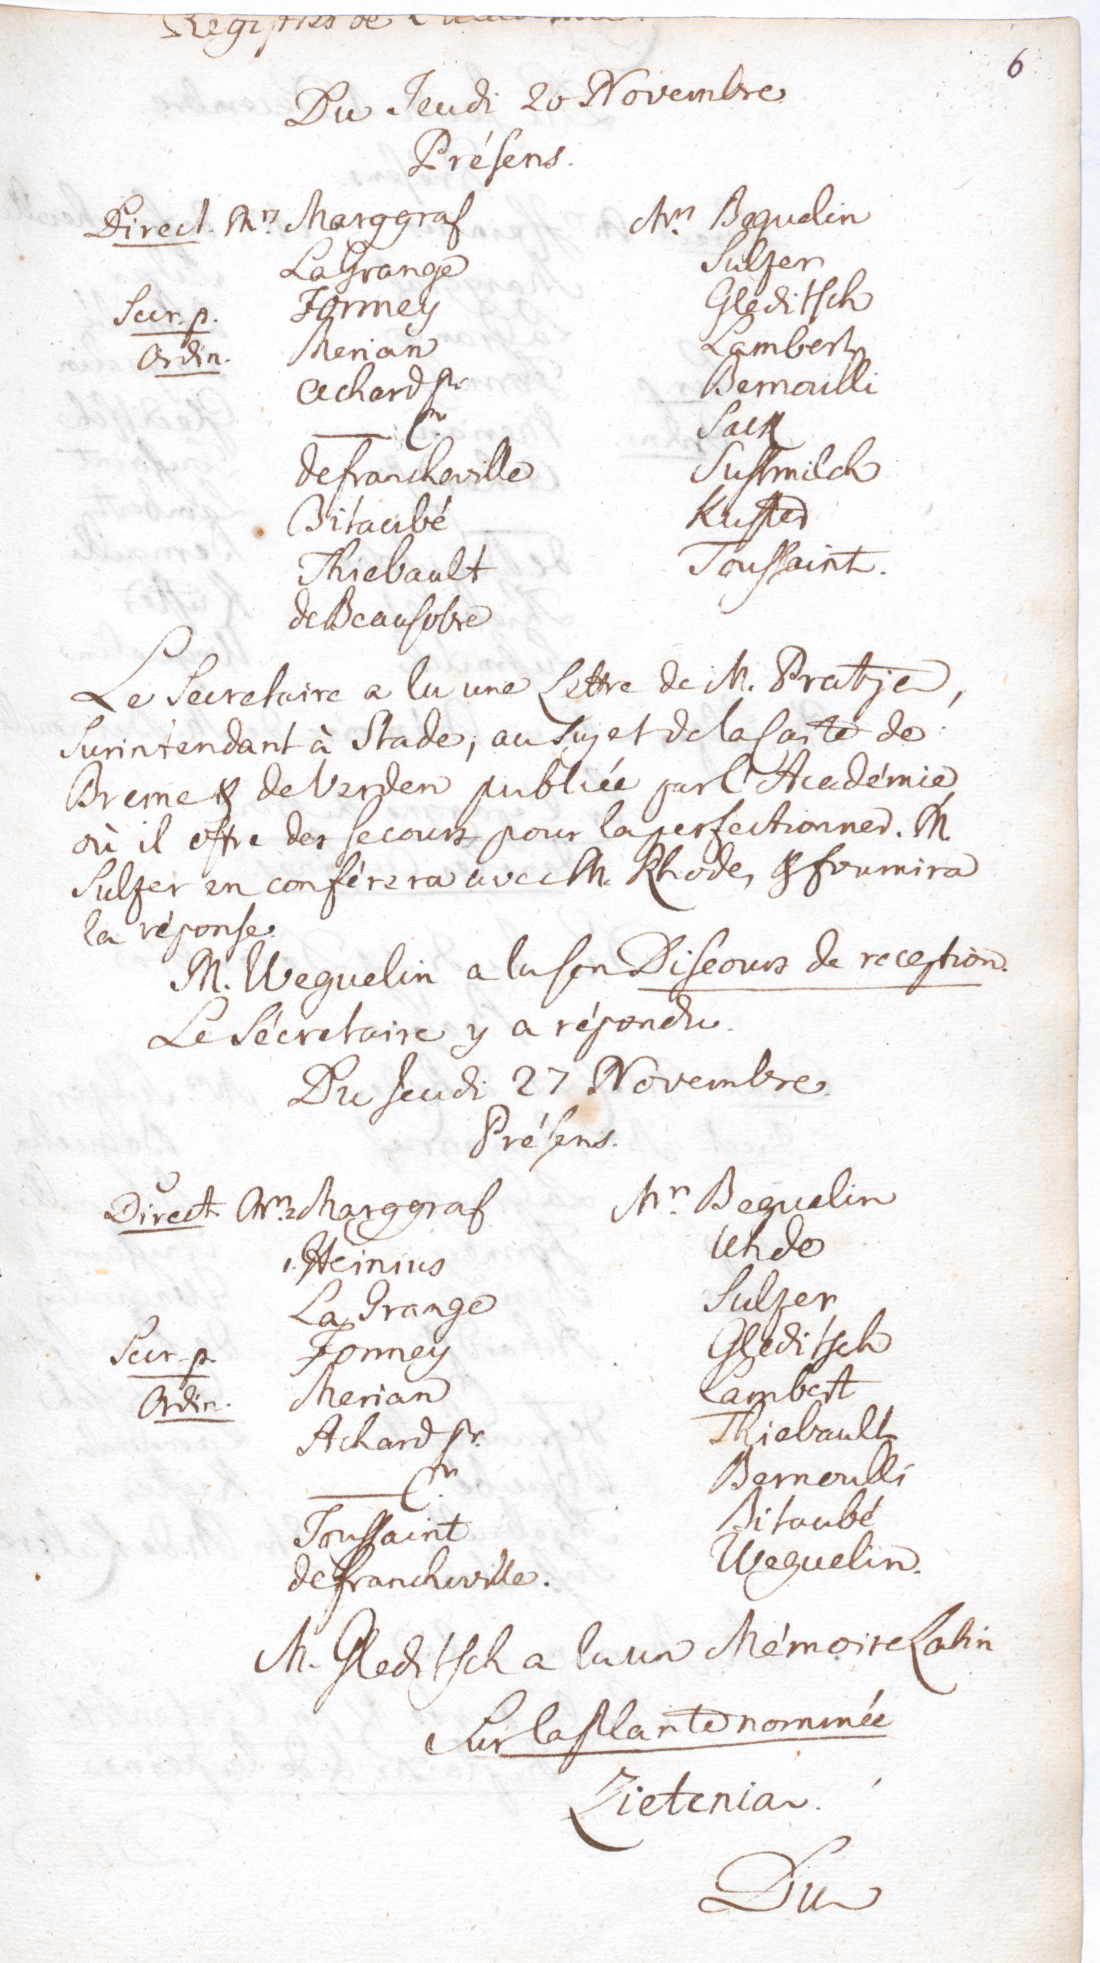 Registres de l'Académie.
6
Du Jeudi 20 Novembre
Présens.
Direct. Mrs Marggraf
La Grange
Secr. p. Formey
Ordin. Merian
Achard Pr.
——— C.
de Francheville
Bitaubé
Thiebault
de Beausobre
Mrs Beguelin
Sulzer
Gleditsch
Lambert
Bernoulli
Sack
Susmilch
Kuster
Toussaint.
Le Secretaire a lu une Lettre de M. Pratje,
Surintendant à Stade, au sujet de la Carte de
Breme & de Verden publiée par l'Académie
où il offre des secours pour la perfectionner. M.
Sulzer en conférera avec M. Rhode, & fournira
la réponse.
M. Weguelin a lu son Discours de reception.
Le Sécretaire y a répondu.
Du Jeudi 27 Novembre
Présens.
Direct. Mrs Marggraf
Heinius
La Grange
Secr. p. Formey
Ordin. Merian
Achard Pr.
——— C.
Toussaint
de Francheville.
Mrs Beguelin
Uhde
Sulzer
Gleditsch
Lambert
Thiebault
Bernoulli
Bitaubé
Weguelin.
M. Gleditsch a lu un Mémoire Latin
Sur la Plante nommée
Zietenia.
Du